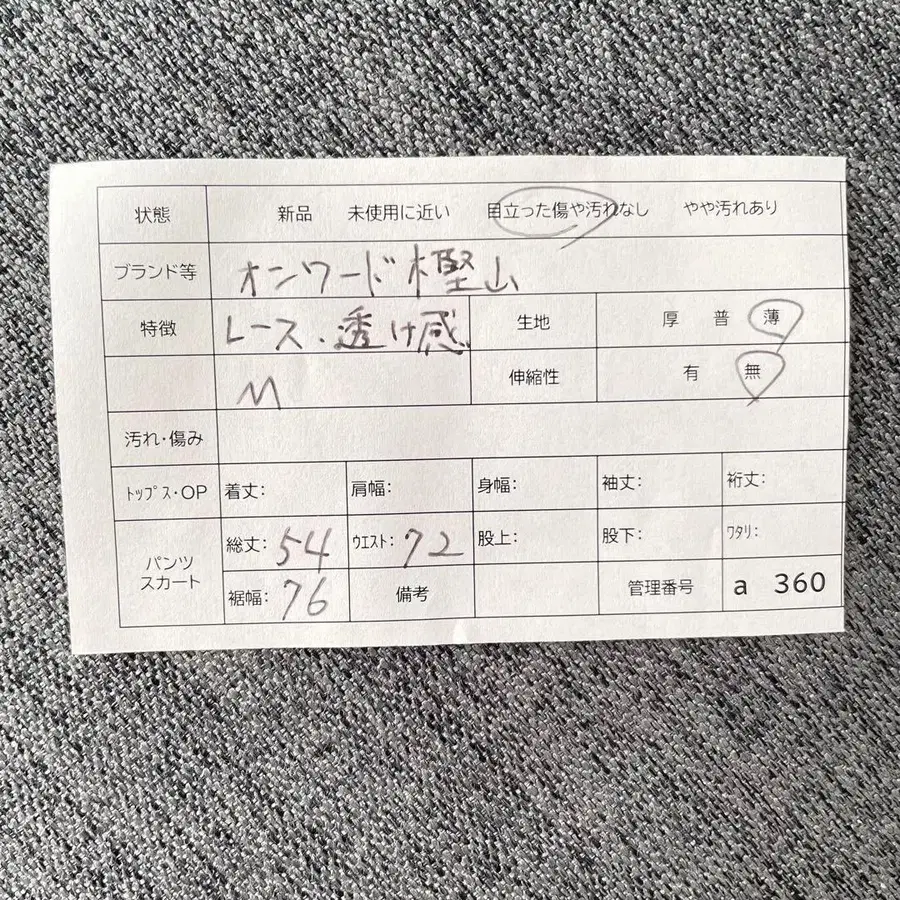 状態 新品 未使用に近い 目立った傷や汚れなし やや汚れあり
ブランド等 オンワード樫山
特徴 レース・透け感 生地 厚 普 薄
M 伸縮性 有 無
汚れ・傷み
トップス・OP 着丈: 肩幅: 身幅: 袖丈: 裄丈:
パンツ スカート 総丈: 54 ウエスト: 72 股上: 股下: ワタリ:
裾幅: 76 備考 管理番号 a 360